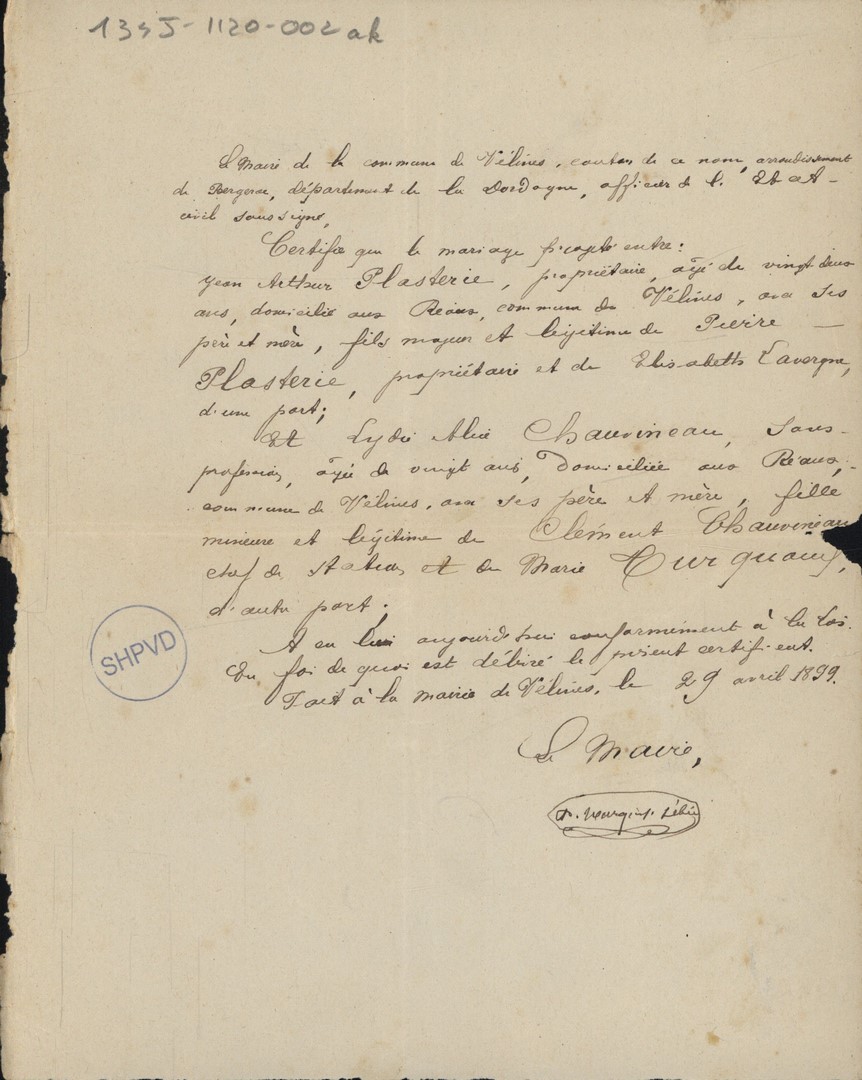 1345-1120-002 ak
Le Maire de la commune de Vélines, canton de ce nom, arrondissement
de Bergerac, département de la Dordogne, officier de l'Etat-
civil soussigné,
Certifie que le mariage projeté entre:
Jean Arthur Plasterie, propriétaire, âgé de vingt deux
ans, domicilié aux Réaux, commune de Vélines, avec ses
père et mère, fils majeur et légitime de Pierre —
Plasterie, propriétaire et de Elisabeth Lavergne,
d'une part;
Et Lydie Alice Chauvineau, sans-
profession, âgée de vingt ans, domiciliée aux Réaux,
commune de Vélines, avec ses père et mère, fille
mineure et légitime de Clément Chauvineau
chef de station et de Marie
d'autre part;
A eu lieu aujourd'hui conformément à la loi.
En foi de quoi est délivré le présent certificat.
Fait à la mairie de Vélines, le 29 avril 1899.
Le Maire,
SHPVD